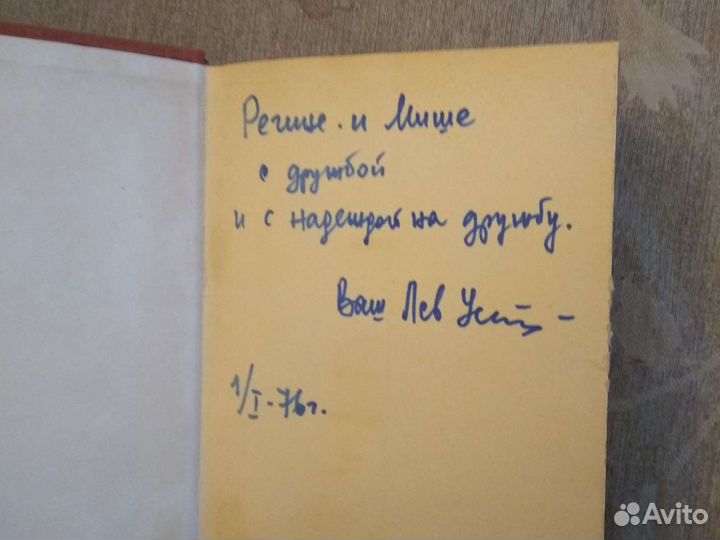 Регине и Мише
с дружбой
и с надеждой на дружбу.
Ваш Лев
1/I-76г.
Avito